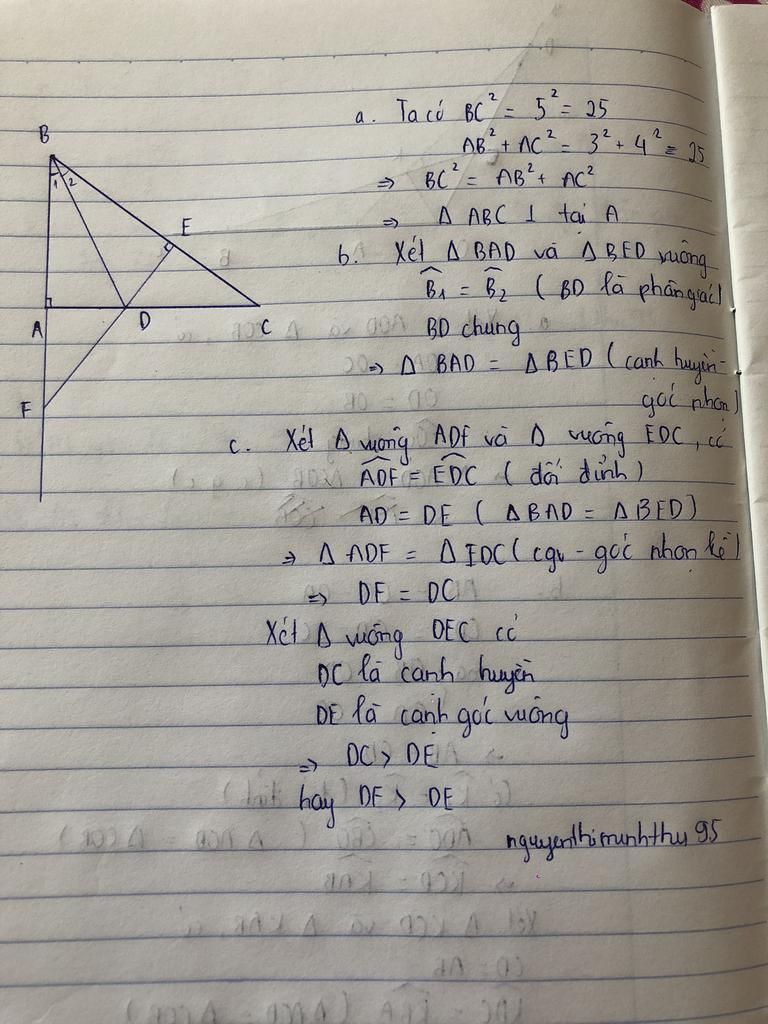 a. Ta có BC² = 5² = 25
AB² + AC² = 3² + 4² = 25
⇒ BC² = AB² + AC²
⇒ Δ ABC ⊥ tại A
B
1 2
E
A
D
C
F
b. Xét Δ BAD và Δ BED vuông
B̂₁ = B̂₂ ( BD là phân giác)
BD chung
⇒ Δ BAD = Δ BED ( cạnh huyền -
góc nhọn)
c. Xét Δ vuông ADF và Δ vuông EDC, có
ADF = EDC ( đối đỉnh)
AD = DE ( Δ BAD = Δ BED)
⇒ Δ ADF = Δ EDC ( cgv - góc nhọn kề)
⇒ DF = DC
Xét Δ vuông DEC có
DC là cạnh huyền
DE là cạnh góc vuông
⇒ DC > DE
hay DF > DE
nguyenthiminhthu 95